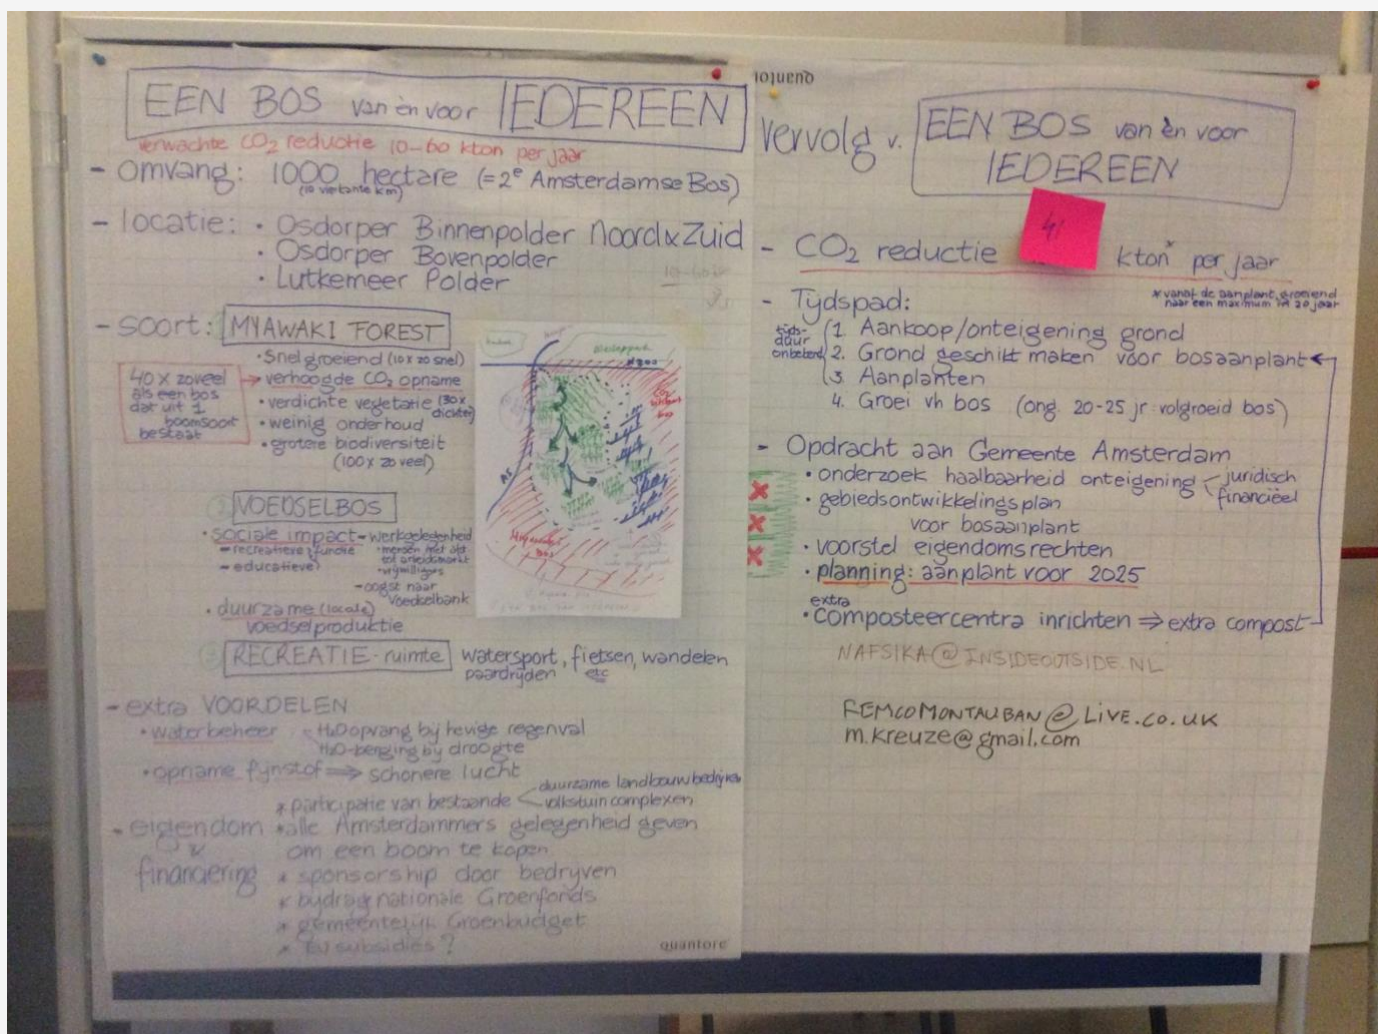 EEN BOS van èn voor IEDEREEN
verwachte CO2 reductie 10-60 kton per jaar
- omvang: 1000 hectare (=2e Amsterdamse Bos)
(10 vierkante km)
- locatie: • Osdorper Binnenpolder Noord & Zuid
• Osdorper Bovenpolder
• Lutkemeer Polder
- soort: MYAWAKI FOREST
• Snel groeiend (10x zo snel)
40x zoveel als een bos dat uit 1 boomsoort bestaat
→ verhoogde CO2 opname
• verdichte vegetatie (30x dichter)
• weinig onderhoud
• grotere biodiversiteit
(100x zoveel)
A5
VOEDSELBOS
• sociale impact - werkgelegenheid
- recreatieve functie
- educatieve
• mensen met afst tot arbeidsmarkt
• vrijwilligers
- oogst naar voedselbank
• duurzame (locale)
voedselproductie
RECREATIE-ruimte watersport, fietsen, wandelen
paardrijden etc
- extra VOORDELEN
• waterbeheer H2O opvang bij hevige regenval
H2O-berging bij droogte
• opname fijnstof ⇒ schonere lucht
* participatie van bestaande < duurzame landbouwbedrijven
volkstuin complexen
- eigendom & financiering
* alle Amsterdammers gelegenheid geven
om een boom te kopen
* sponsorship door bedrijven
* bijdrage nationale Groenfonds
* gemeentelijk Groenbudget
* EU subsidies?
quantore
quantore
vervolg v. EEN BOS van èn voor
IEDEREEN
- CO2 reductie 41 kton* per jaar
* vanaf de aanplant, groeiend
naar een maximum in 20 jaar
- Tijdspad:
tijdsduur onbekend
1. Aankoop/onteigening grond
2. Grond geschikt maken voor bosaanplant ←
3. Aanplanten
4. Groei vh bos (ong. 20-25 jr volgroeid bos)
- Opdracht aan Gemeente Amsterdam
• onderzoek haalbaarheid onteigening < juridisch
financieel
• gebiedsontwikkelingsplan
voor bosaanplant
• voorstel eigendomsrechten
• planning: aanplant voor 2025
extra
• composteercentra inrichten ⇒ extra compost
NAFSIKA@INSIDEOUTSIDE.NL
REMCOMONTAUBAN@LIVE.CO.UK
m.kreuze@gmail.com